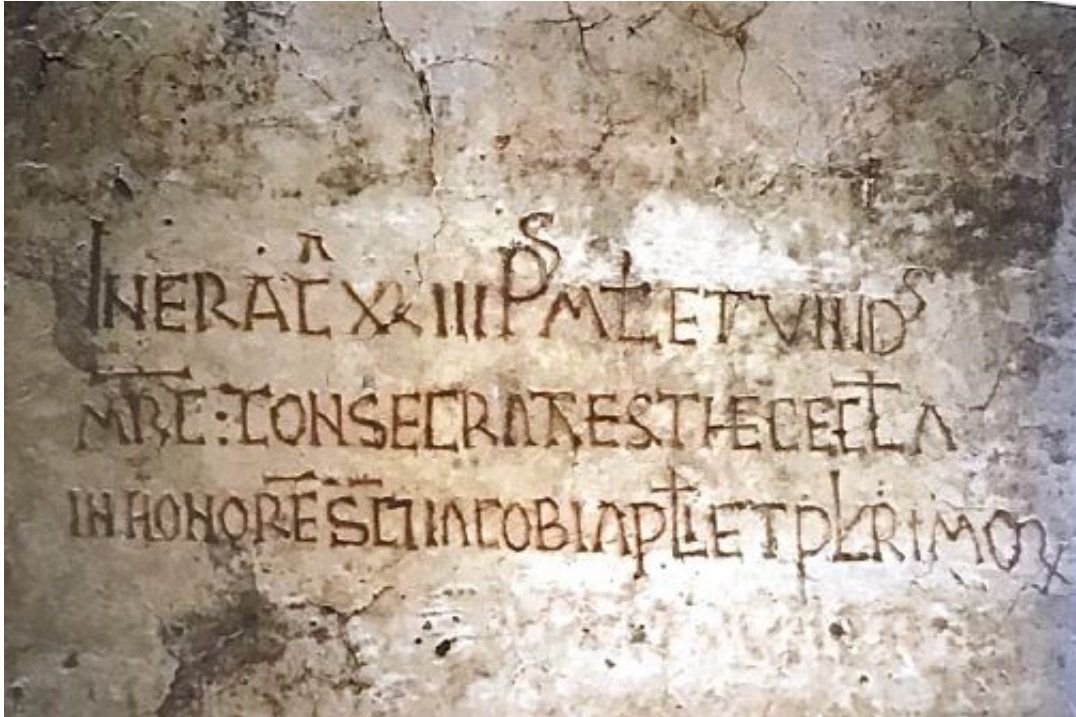 INERA C̄ XXIIII Pˢ MŁ ET VIIIIDˢ
MRC : CONSECRAT ESTHECECŁA
INHONORE SCI IACOBI APŁI ET PŁRIMOR